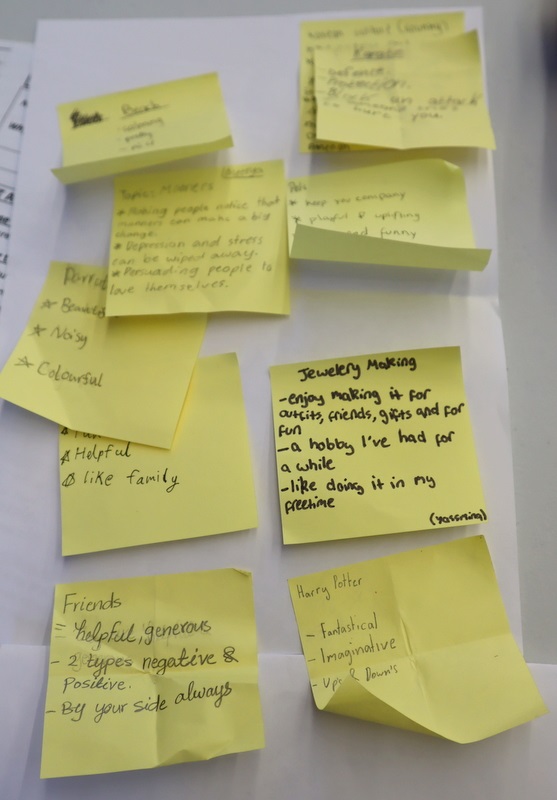 Beach
- relaxing
- pretty
Karate
- Defence
- Protection
- Block an attack
Topic: Manners
* Making people notice that
manners can make a big
change.
* Depression and stress
can be wiped away.
* Persuading people to
love themselves.
* keep you company
* playful & uplifting
funny
Parrot
* Beautiful
* Noisy
* Colourful
Helpful
like family
Jewelery Making
-enjoy making it for
outfits, friends, gifts and for
fun
-a hobby I've had for
a while
-like doing it in my
freetime
(yassming)
Friends
= helpful, generous
- 2 types negative &
Positive.
- By your side always
Harry Potter
- Fantastical
- Imaginative
- Ups & Down's